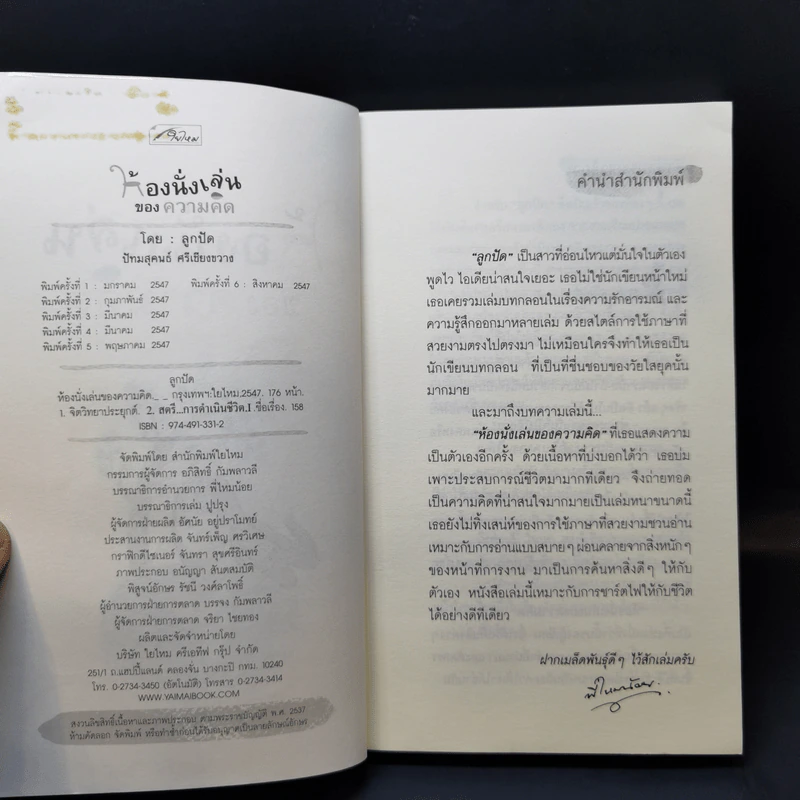 ใยไหม
ห้องนั่งเล่น
ของความคิด
โดย : ลูกปัด
ปัทมสุคนธ์ ศรีเชียงขวาง
พิมพ์ครั้งที่ 1 : มกราคม 2547 พิมพ์ครั้งที่ 6 : สิงหาคม 2547
พิมพ์ครั้งที่ 2 : กุมภาพันธ์ 2547
พิมพ์ครั้งที่ 3 : มีนาคม 2547
พิมพ์ครั้งที่ 4 : มีนาคม 2547
พิมพ์ครั้งที่ 5 : พฤษภาคม 2547
ลูกปัด
ห้องนั่งเล่นของความคิด._ _ กรุงเทพฯ:ใยไหม,2547. 176 หน้า.
1. จิตวิทยาประยุกต์. 2. สตรี...การดำเนินชีวิต.I.ชื่อเรื่อง. 158
ISBN : 974-491-331-2
จัดพิมพ์โดย สำนักพิมพ์ใยไหม
กรรมการผู้จัดการ อภิสิทธิ์ กัมพลาวลี
บรรณาธิการอำนวยการ พี่ไหมน้อย
บรรณาธิการเล่ม ปูปรุง
ผู้จัดการฝ่ายผลิต อัศนัย อยู่ปราโมทย์
ประสานงานการผลิต จันทร์เพ็ญ ศรวิเศษ
กราฟิกดีไซเนอร์ จันทรา สุขศรีอินทร์
ภาพประกอบ อนัญญา สันตสมบัติ
พิสูจน์อักษร รัชนี วงศ์ลาโพธิ์
ผู้อำนวยการฝ่ายการตลาด บรรจง กัมพลาวลี
ผู้จัดการฝ่ายการตลาด จริยา ไชยทอง
ผลิตและจัดจำหน่ายโดย
บริษัท ใยไหม ครีเอทีฟ กรุ๊ป จำกัด
251/1 ถ.แฮปปี้แลนด์ คลองจั่น บางกะปิ กทม. 10240
โทร. 0-2734-3450 (อัตโนมัติ) โทรสาร 0-2734-3414
WWW.YAIMAIBOOK.COM
สงวนลิขสิทธิ์เนื้อหาและภาพประกอบ ตามพระราชบัญญัติ พ.ศ. 2537
ห้ามคัดลอก จัดพิมพ์ หรือทำซ้ำก่อนได้รับอนุญาตเป็นลายลักษณ์อักษร
คำนำสำนักพิมพ์
"ลูกปัด" เป็นสาวที่อ่อนไหวแต่มั่นใจในตัวเอง
พูดไว ไอเดียน่าสนใจเยอะ เธอไม่ใช่นักเขียนหน้าใหม่
เธอเคยรวมเล่มบทกลอนในเรื่องความรักอารมณ์ และ
ความรู้สึกออกมาหลายเล่ม ด้วยสไตล์การใช้ภาษาที่
สวยงามตรงไปตรงมา ไม่เหมือนใครจึงทำให้เธอเป็น
นักเขียนบทกลอน ที่เป็นที่ชื่นชอบของวัยใสยุคนั้น
มากมาย
และมาถึงบทความเล่มนี้...
"ห้องนั่งเล่นของความคิด" ที่เธอแสดงความ
เป็นตัวเองอีกครั้ง ด้วยเนื้อหาที่บ่งบอกได้ว่า เธอบ่ม
เพาะประสบการณ์ชีวิตมามากทีเดียว จึงถ่ายทอด
เป็นความคิดที่น่าสนใจมากมายเป็นเล่มหนาขนาดนี้
เธอยังไม่ทิ้งเสน่ห์ของการใช้ภาษาที่สวยงามชวนอ่าน
เหมาะกับการอ่านแบบสบายๆ ผ่อนคลายจากสิ่งหนักๆ
ของหน้าที่การงาน มาเป็นการค้นหาสิ่งดีๆ ให้กับ
ตัวเอง หนังสือเล่มนี้เหมาะกับการชาร์ตไฟให้กับชีวิต
ได้อย่างดีทีเดียว
ฝากเมล็ดพันธุ์ดีๆ ไว้สักเล่มครับ
พี่ไหมน้อย